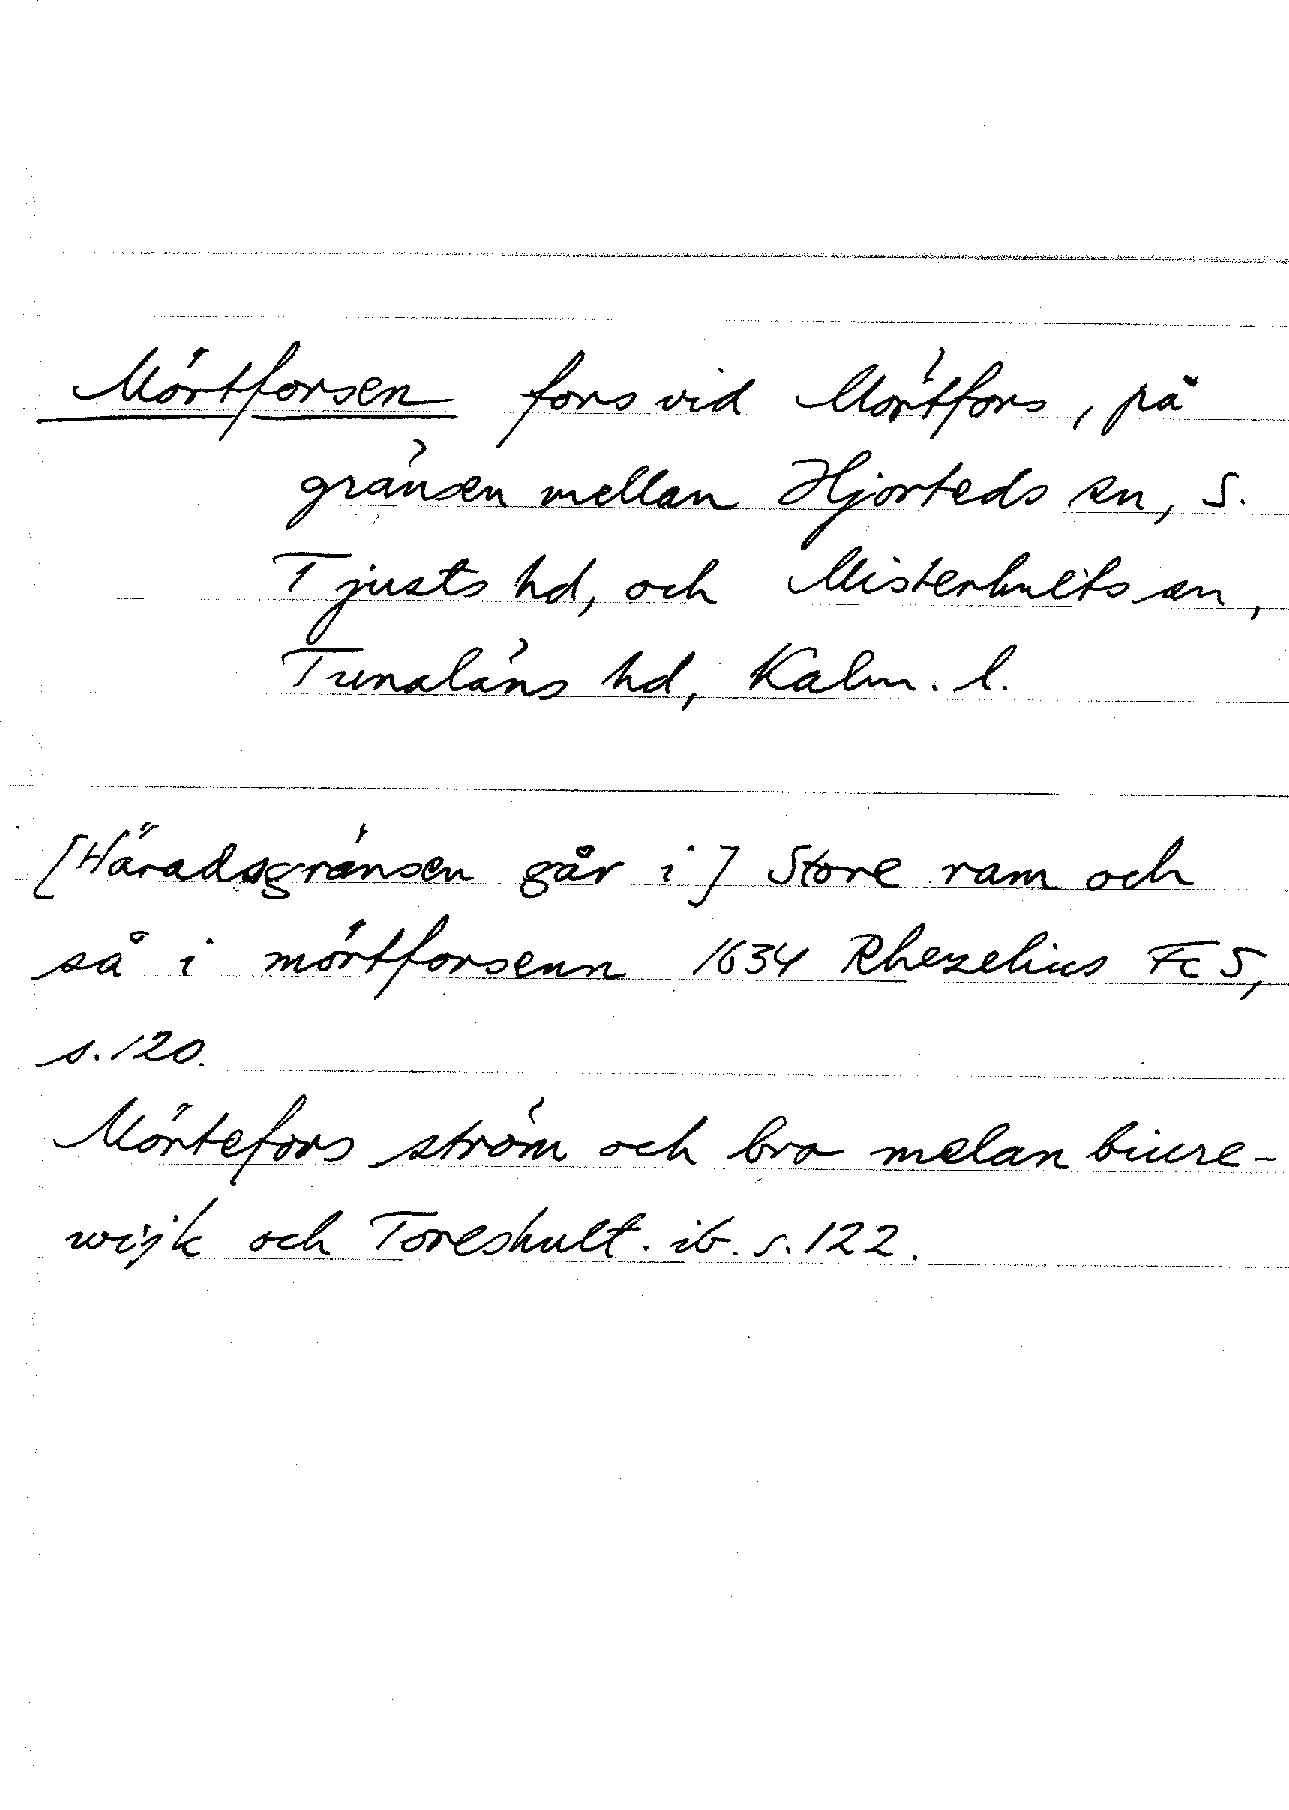 Mörtforsen fors vid Mörtfors, på
gränsen mellan Hjorteds sn, S.
Tjusts hd, och Misterhults sn,
Tunaläns hd, Kalm. l.
[Häradsgränsen går i] Store ram och
så i mörtforsenn 1634 Rhezelius Fc 5,
s. 120.
Mörtefors ström och bro melan biure-
wijk och Toreshult. ib. s. 122.